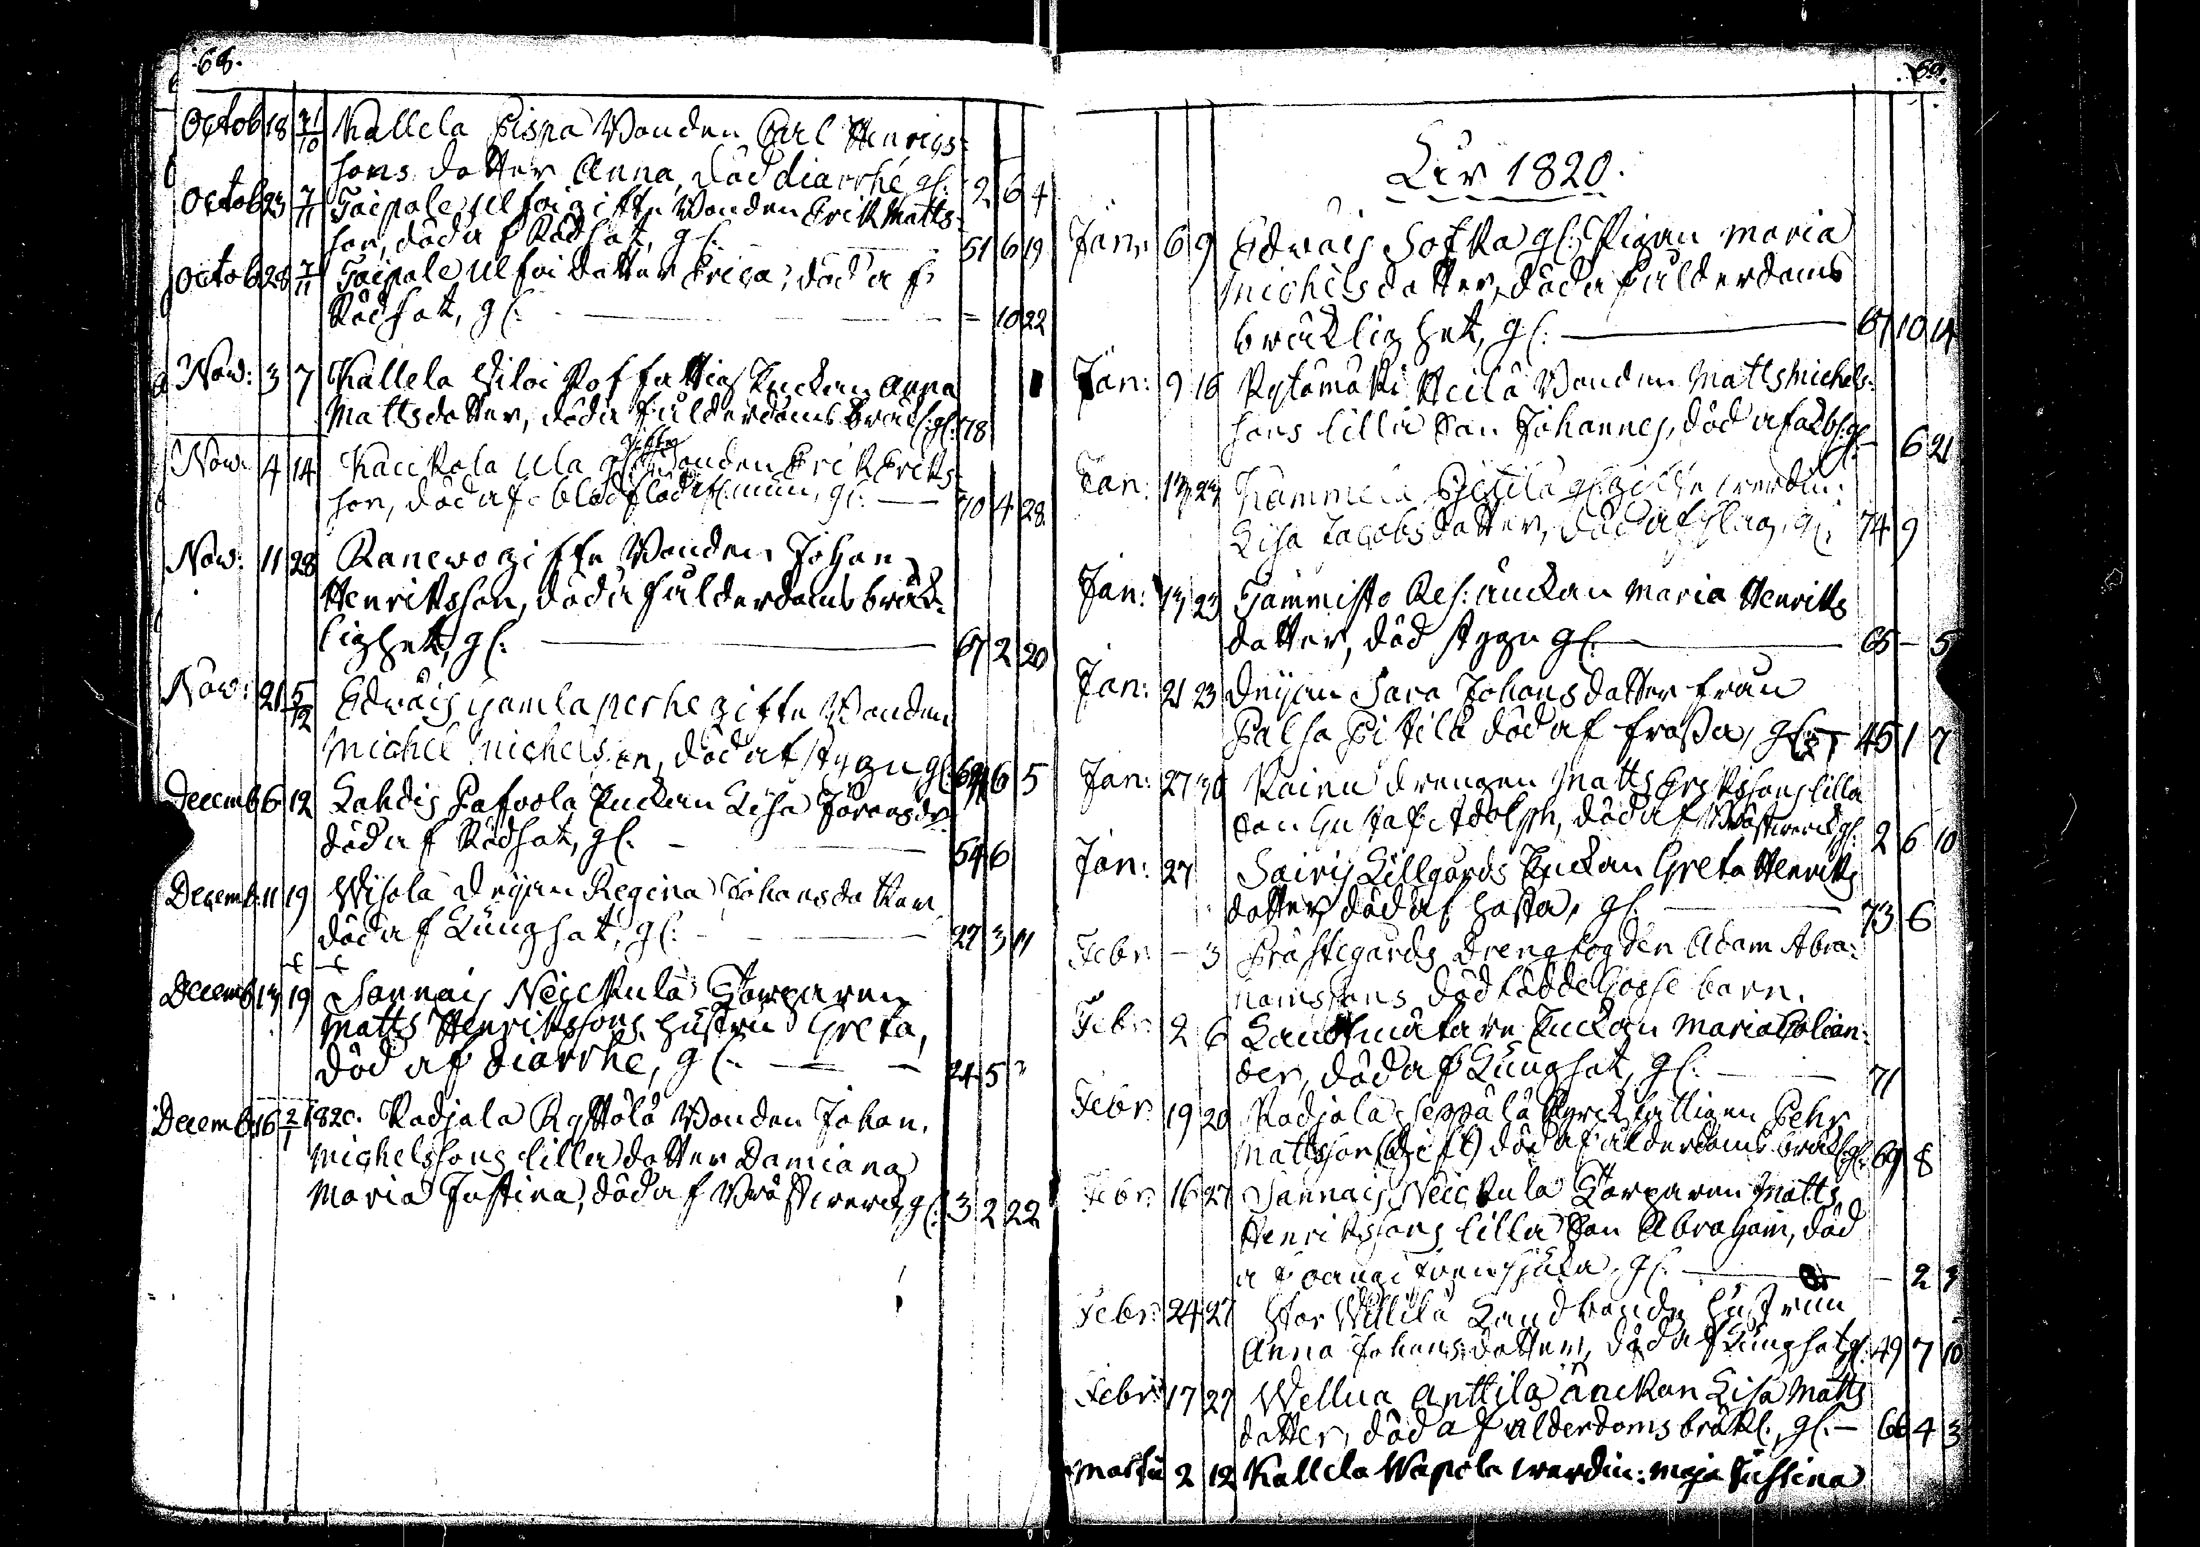 68.
Octob 18 31/10 Kallela Pispa Bonden Carl Henrics-
sons dotter Anna, död diarrhé gl: 2 6 4
Octob 23 7/11 Taipale Ulfoi gifte Bonden Erik Matts-
son, död af Rödsot, gl. 51 6 19
Octob 28 7/11 Taipale Ulfoi dotter Erica, död af
Rödsot, gl: = 10 22
Now: 3 7 Kallela fattig Enckan Anna
Mattsdotter, död af ålderdoms bräcl: gl: 78
Now: 4 14 Kauckola Ula gifte Bonden Erik Eriks-
son, död af blodflöd, gl. 70 4 28
Now: 11 28 Ranewo gifte Bonden Johan
Henriksson, död af ålderdoms bräck-
lighet, gl. 67 2 20
Now: 21 5/12 Edwais gamlaperhe gifte Bonden
Michel Michelsson, död af stygn gl. 6 5
Decemb 6 12 Lahdis Pafvola Enckan Lisa Göransdr
död af Rödsot, gl. 54 6
Decemb 11 19 Wisola Drijan Regina Johansdotter
död af Lungsot, gl: 27 3 11
Decemb 13 19 Sannais Neickula Torparen
Matts Henrikssons hustru Greta,
död af diarrhé, gl. 24 5
Decemb 16 2/1 1820. Kodjala Ryttölä Bonden Johan
Michelssons lilla dotter Damiana
Maria Justina, död af Bröstwerck, gl. 3 2 22
69.
Åhr 1820.
Jan: 6 9 Edwais Sofka gl: Pigan Maria
Michelsdotter, död af ålderdoms
bräcklighet, gl. 67 10 14
Jan: 9 16 Heilä Bonden Matts Michels-
sons lilla Son Johannes, död af gl. 6 21
Jan: 13 23 gl: gifte werdin:
Lisa Jacobsdotter, död af slag, gl. 74 9
Jan: 13 23 Tammisto Res: änckan Maria Henriks
dotter, död stygn gl. 65 – 5
Jan: 21 23 Drijan Sara Johansdotter från
Palsa Pitilä död af frossa, gl: 45 1 7
Jan: 27 30 Kainu drengen Matts Erikssons lilla
Son Gustaf Adolph, död af Bröstwerck gl. 2 6 10
Jan: 27 Sairis Lillgårds Enckan Greta Henriks
dotter, död af hosta, gl. 73 6
Febr: – 3 Prästegårds Drengfogden Adam Abra-
hamssons dödfödde Gosse barn.
Febr: 2 6 Landtmätare Enckan Maria Polian-
der, död af Lungsot, gl. 71
Febr: 19 20 Kodjala Seppälä Kyrckfattigen Pehr
Mattsson (Gift) död af ålderdoms bräckl. gl. 69 8
Febr: 16 27 Sannais Neickula Torparen Matts
Henrikssons lilla Son Abraham, död
af gl. – 2 3
Febr: 24 27 Stor Willilä Landbonde hustrun
Anna Johansdotter, död af Lungsot gl. 49 7 10
Febr: 17 27 Wellua Anttila änckan Lisa Matts
dotter, död af ålderdoms bräkl., gl. – 66 4 3
Martii 2 12 Kallela Wapola werdin: Maja Justina